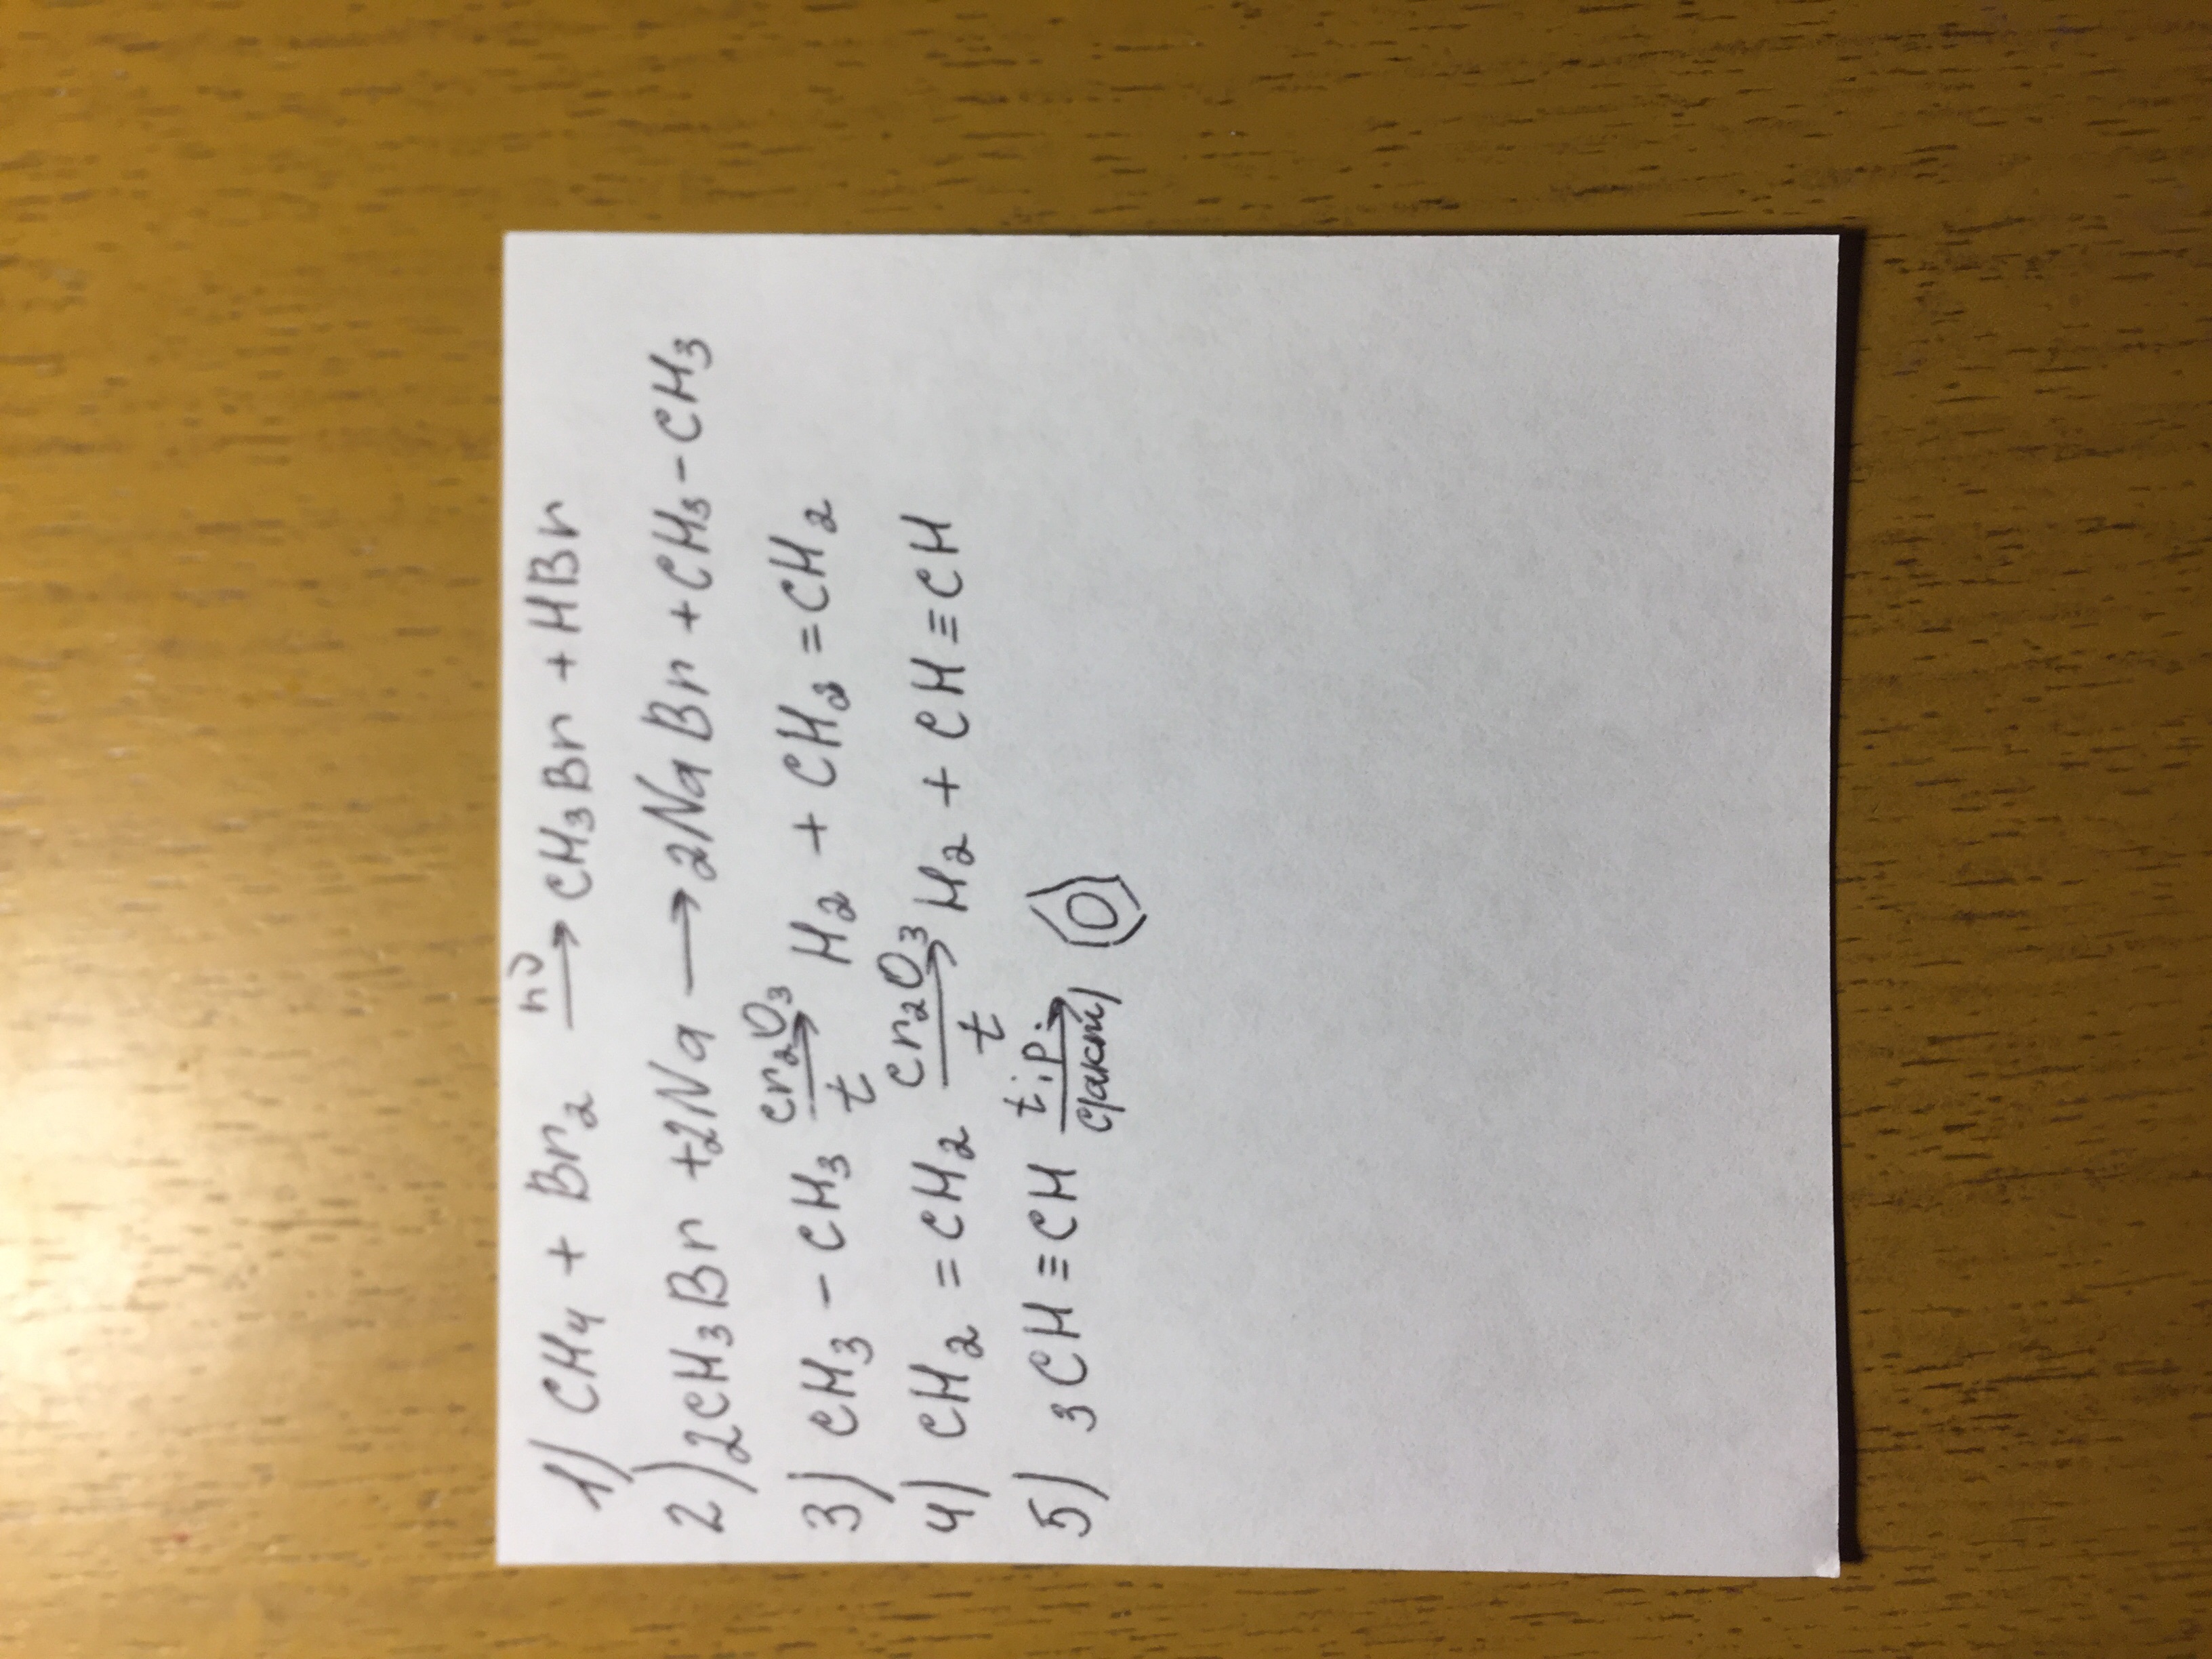 1) CH₄ + Br₂ —hν→ CH₃Br + HBr
2) 2CH₃Br + 2Na → 2NaBr + CH₃-CH₃
3) CH₃-CH₃ —Cr₂O₃, t→ H₂ + CH₂=CH₂
4) CH₂=CH₂ —Cr₂O₃, t→ H₂ + CH≡CH
5) 3CH≡CH —t; p; C(акт)→